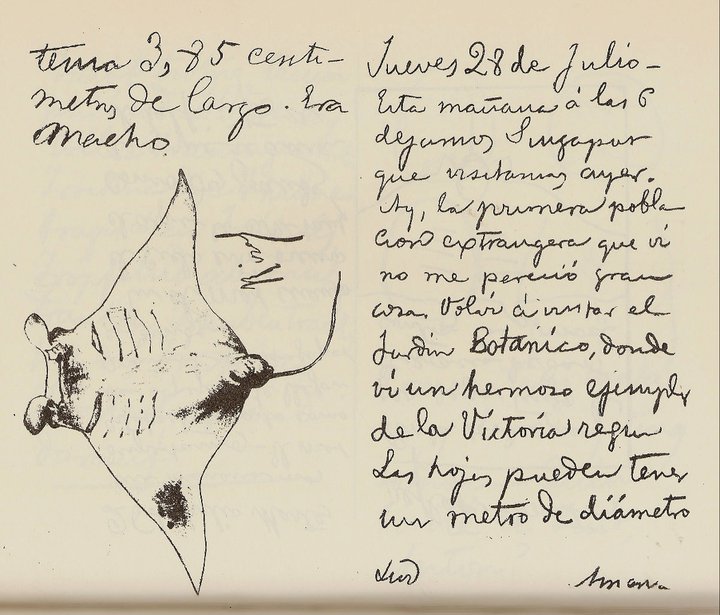 tenia 3,85 centi-
metros de largo. Era
Macho.
Jueves 28 de Julio-
Esta mañana á las 6
dejamos Singapur
que visitamos ayer.
Ay, la primera pobla
cion extrangera que vi
no me pereció gran
cosa. Volví á visitar el
Jardin Botánico, donde
vi un hermoso ejemplar
de la Victoria regia
Las hojas pueden tener
un metro de diámetro